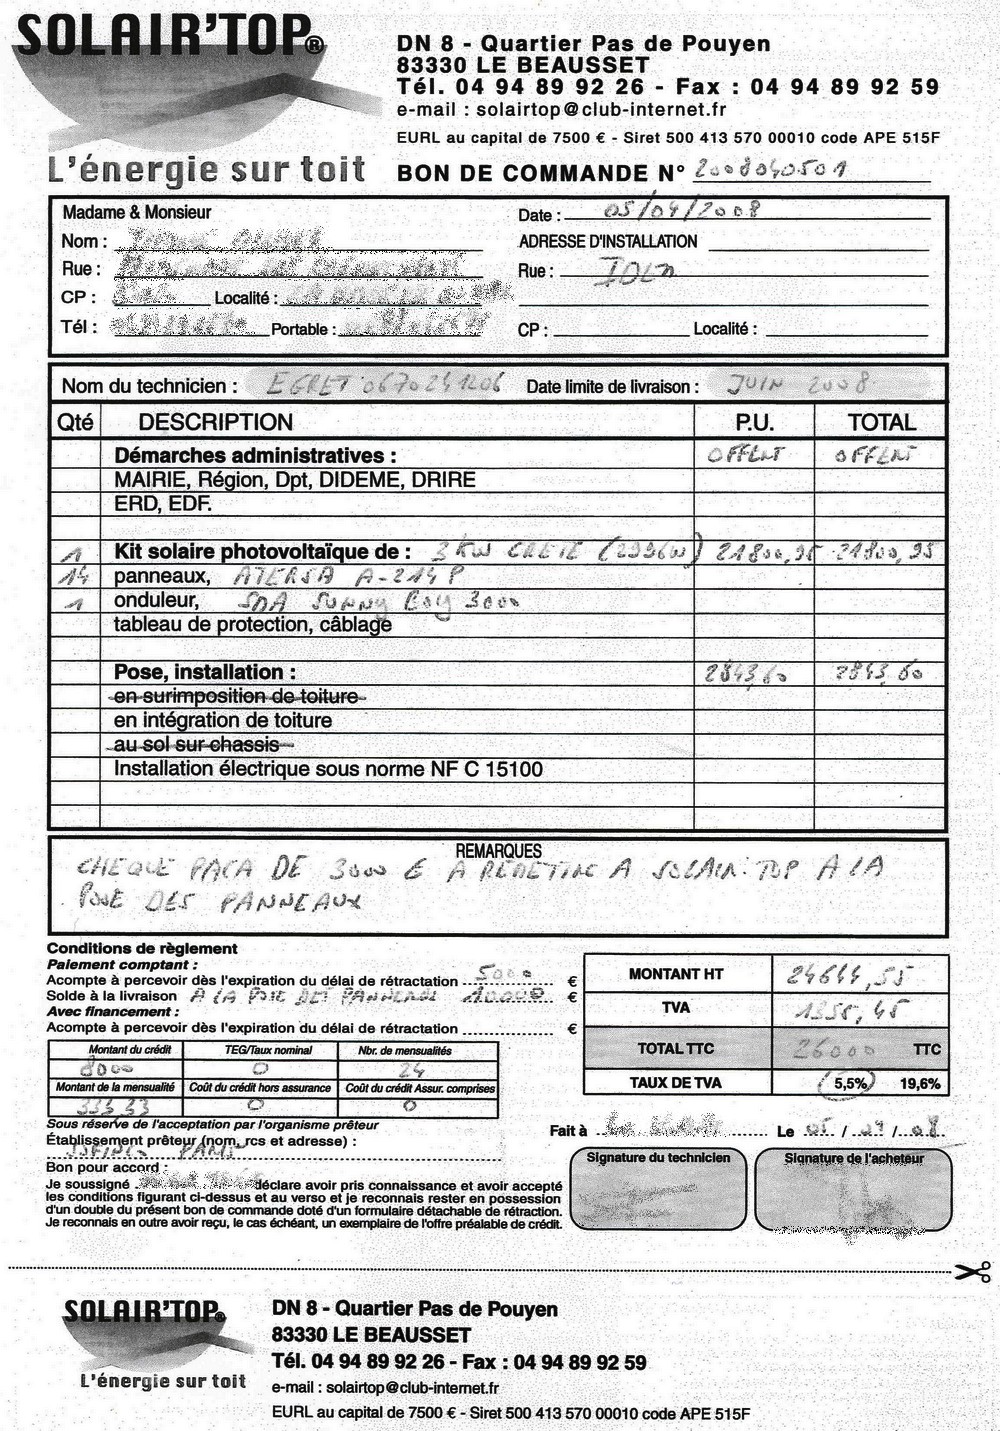 SOLAIR'TOP®
L'énergie sur toit
DN 8 - Quartier Pas de Pouyen
83330 LE BEAUSSET
Tél. 04 94 89 92 26 - Fax : 04 94 89 92 59
e-mail : solairtop@club-internet.fr
EURL au capital de 7500 € - Siret 500 413 570 00010 code APE 515F
BON DE COMMANDE N° 2008040501
Madame & Monsieur
Nom :
Rue :
CP : Localité :
Tél : Portable :
Date : 05/04/2008
ADRESSE D'INSTALLATION
Rue : IDEM
CP : Localité :
Nom du technicien : EGRET 0670241206 Date limite de livraison : JUIN 2008
Qté DESCRIPTION P.U. TOTAL
Démarches administratives : OFFERT OFFERT
MAIRIE, Région, Dpt, DIDEME, DRIRE
ERD, EDF.
1 Kit solaire photovoltaïque de : 3 KW CRETE (2996W) 21800,95 21800,95
14 panneaux, ATERSA A-214 P
1 onduleur, SMA SUNNY BOY 3000
tableau de protection, câblage
Pose, installation : 2843,60 2843,60
en surimposition de toiture
en intégration de toiture
au sol sur chassis
Installation électrique sous norme NF C 15100
REMARQUES
CHEQUE PACA DE 3000 € A REMETTRE A SOLAIR'TOP A LA
POSE DES PANNEAUX
Conditions de règlement
Paiement comptant :
Acompte à percevoir dès l'expiration du délai de rétractation 5000 €
Solde à la livraison A LA POSE DES PANNEAUX 10000 €
Avec financement :
Acompte à percevoir dès l'expiration du délai de rétractation €
Montant du crédit TEG/Taux nominal Nbr. de mensualités
8000 0 24
Montant de la mensualité Coût du crédit hors assurance Coût du crédit Assur. comprises
333,33 0 0
Sous réserve de l'acceptation par l'organisme prêteur
Établissement prêteur (nom, rcs et adresse) :
PARIS
Bon pour accord :
Je soussigné déclare avoir pris connaissance et avoir accepté
les conditions figurant ci-dessus et au verso et je reconnais rester en possession
d'un double du présent bon de commande doté d'un formulaire détachable de rétraction.
Je reconnais en outre avoir reçu, le cas échéant, un exemplaire de l'offre préalable de crédit.
MONTANT HT 24644,55
TVA 1355,45
TOTAL TTC 26000 TTC
TAUX DE TVA 5,5% 19,6%
Fait à Le 05 / 04 / 08
Signature du technicien Signature de l'acheteur
SOLAIR'TOP®
L'énergie sur toit
DN 8 - Quartier Pas de Pouyen
83330 LE BEAUSSET
Tél. 04 94 89 92 26 - Fax : 04 94 89 92 59
e-mail : solairtop@club-internet.fr
EURL au capital de 7500 € - Siret 500 413 570 00010 code APE 515F